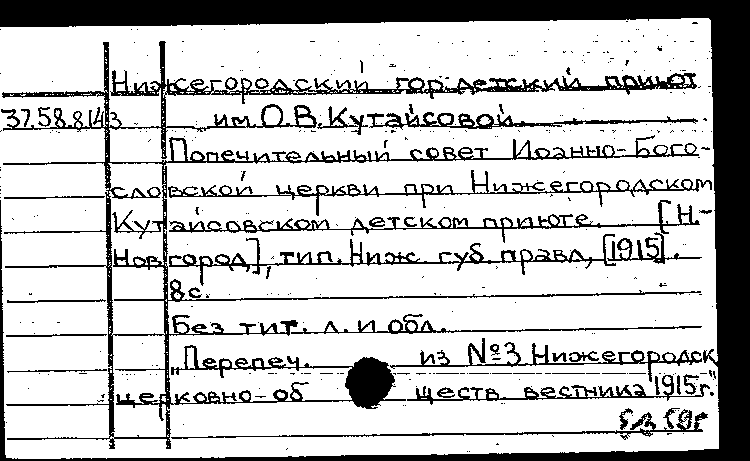 Нижегородский гор. детский приют
37.58.8143 им. О.В. Кутайсовой.
Попечительный совет Иоанно-Бого-
словской церкви при Нижегородском
Кутайсовском детском приюте. [Н.-
Новгород], тип. Ниж. губ. правл, [1915].
8 с.
Без тит. л. и обл.
„Перепеч. из №3 Нижегородск
церковно-обществ. вестника 1915г."